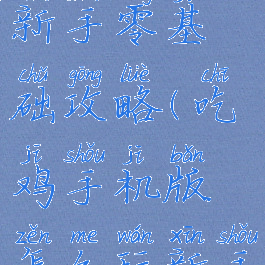 新手零基
chǔ gōng lüè chī
础攻略(吃
jī shǒu jī bǎn
鸡手机版
zěn me wán xīn shǒu
怎么玩新手